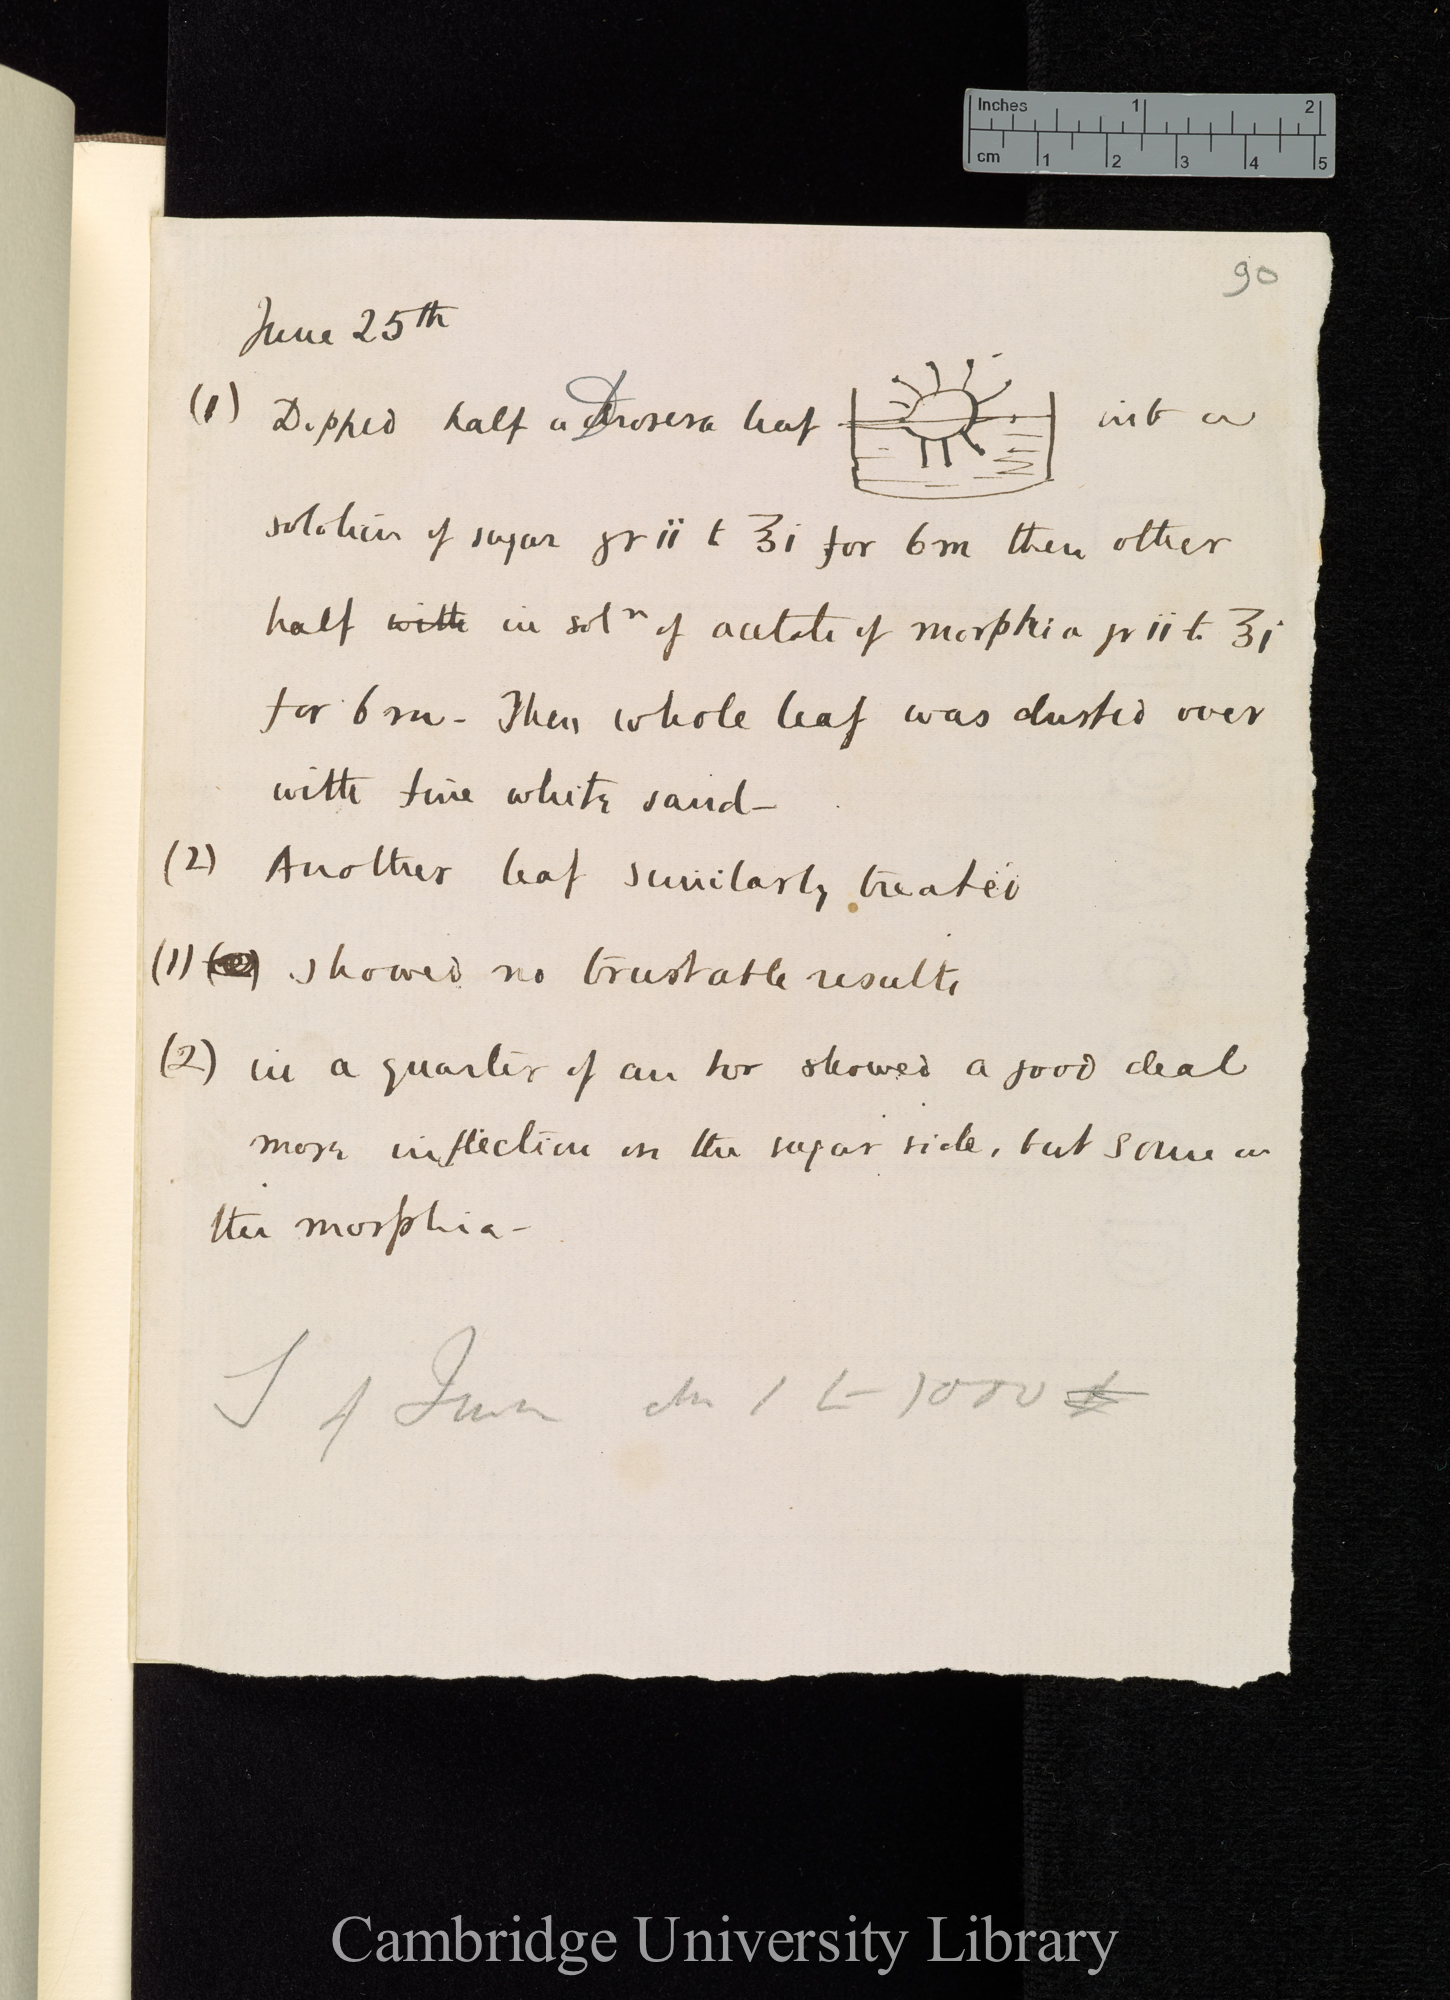 Inches 1 2
cm 1 2 3 4 5
90
June 25th
(1) Dipped half a Drosera leaf into a
solution of sugar gr ii to ʒi for 6m then other
half with in soln of acetate of morphia gr ii to ʒi
for 6m - Then whole leaf was dusted over
with fine white sand -
(2) Another leaf similarly treated
(1) showed no trustable results
(2) in a quarter of an hor showed a good deal
more inflection on the sugar side, but some on
the morphia -
1 to 1000
Cambridge University Library